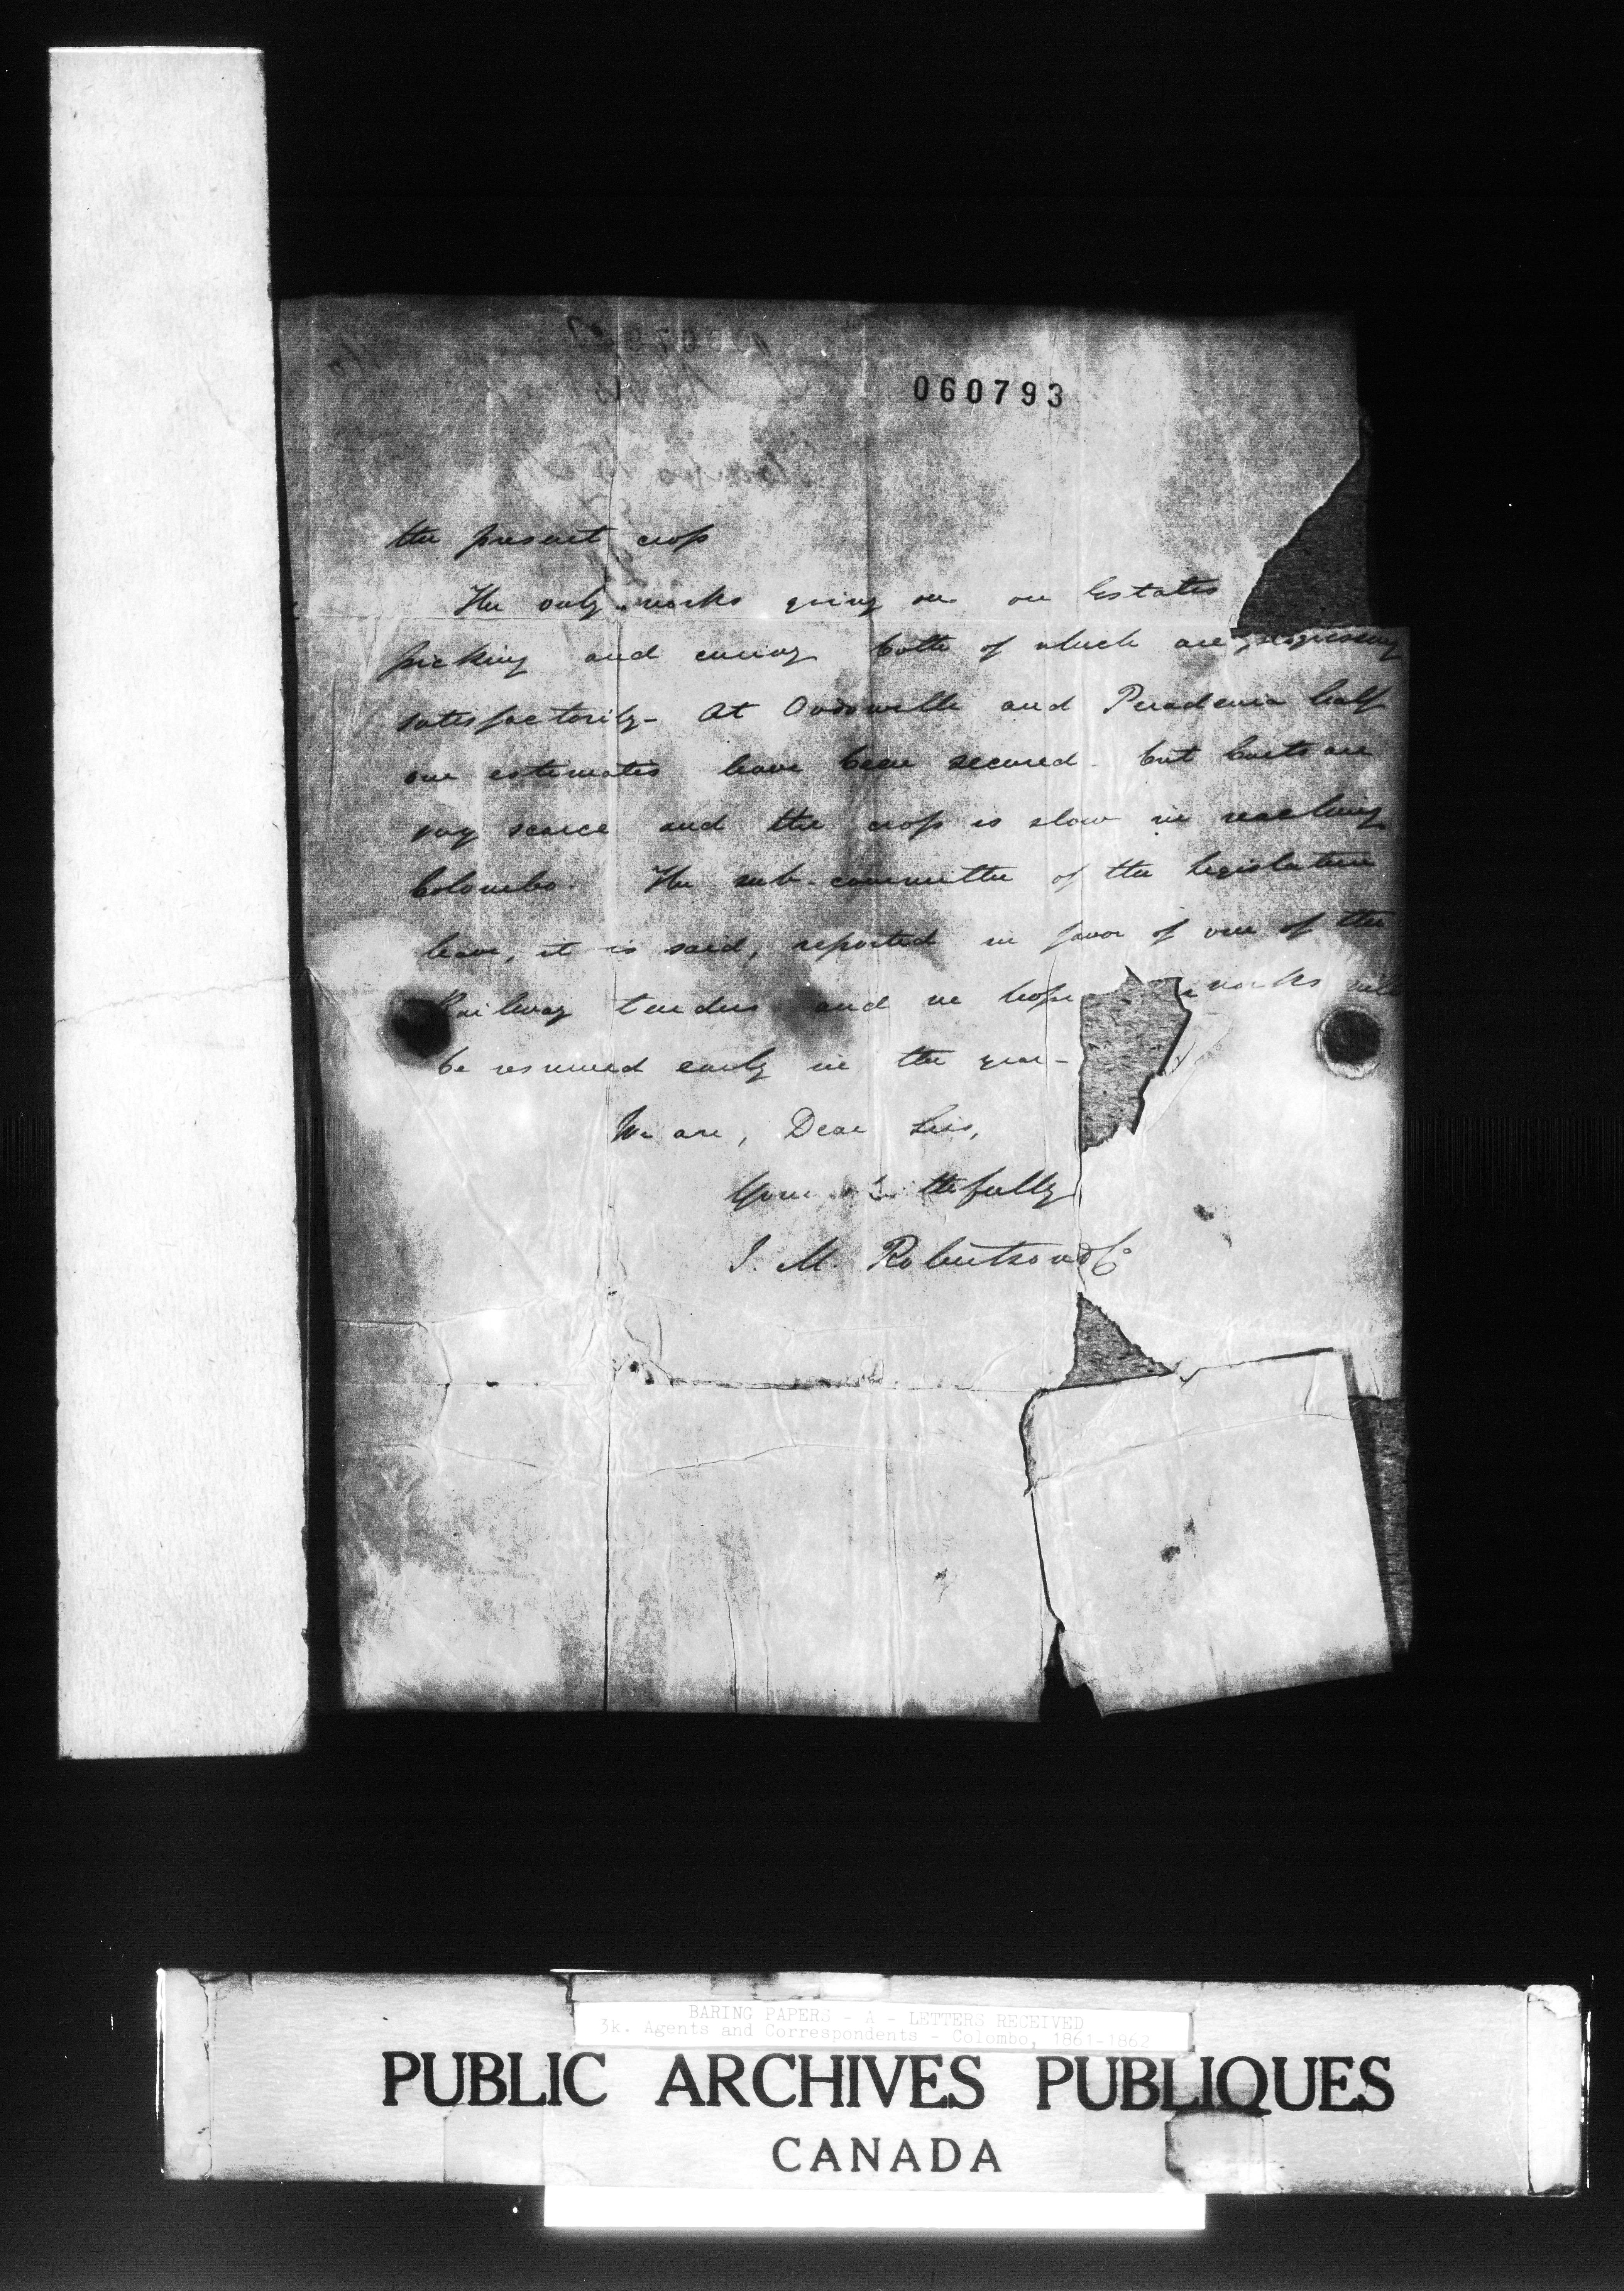 060793
the present crop
The only works going on on Estates
picking and curing both of which are progressing
satisfactorily - At Oodowelle and Peradenia half
our estimates have been secured - but carts are
very scarce and the crop is slow in reaching
Colombo. The sub-committee of the Legislature
have, it is said, reported in favor of one of the
Railway tenders and we hope works will
be resumed early in the year -
We are, Dear Sirs,
Yours faithfully
J. M. Robertson & Co
BARING PAPERS - A - LETTERS RECEIVED
3k. Agents and Correspondents - Colombo, 1861-1862
PUBLIC ARCHIVES PUBLIQUES
CANADA